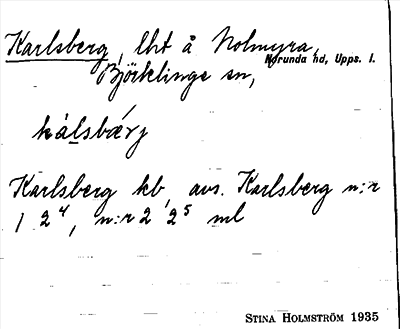 Karlsberg, lht å Nolmyra,
Norunda hd, Upps. l.
Björklinge sn,
kálsbærj
Karlsberg kb, avs. Karlsberg n:r
1 2⁴, n:r 2 2⁵ ml
STINA HOLMSTRÖM 1935